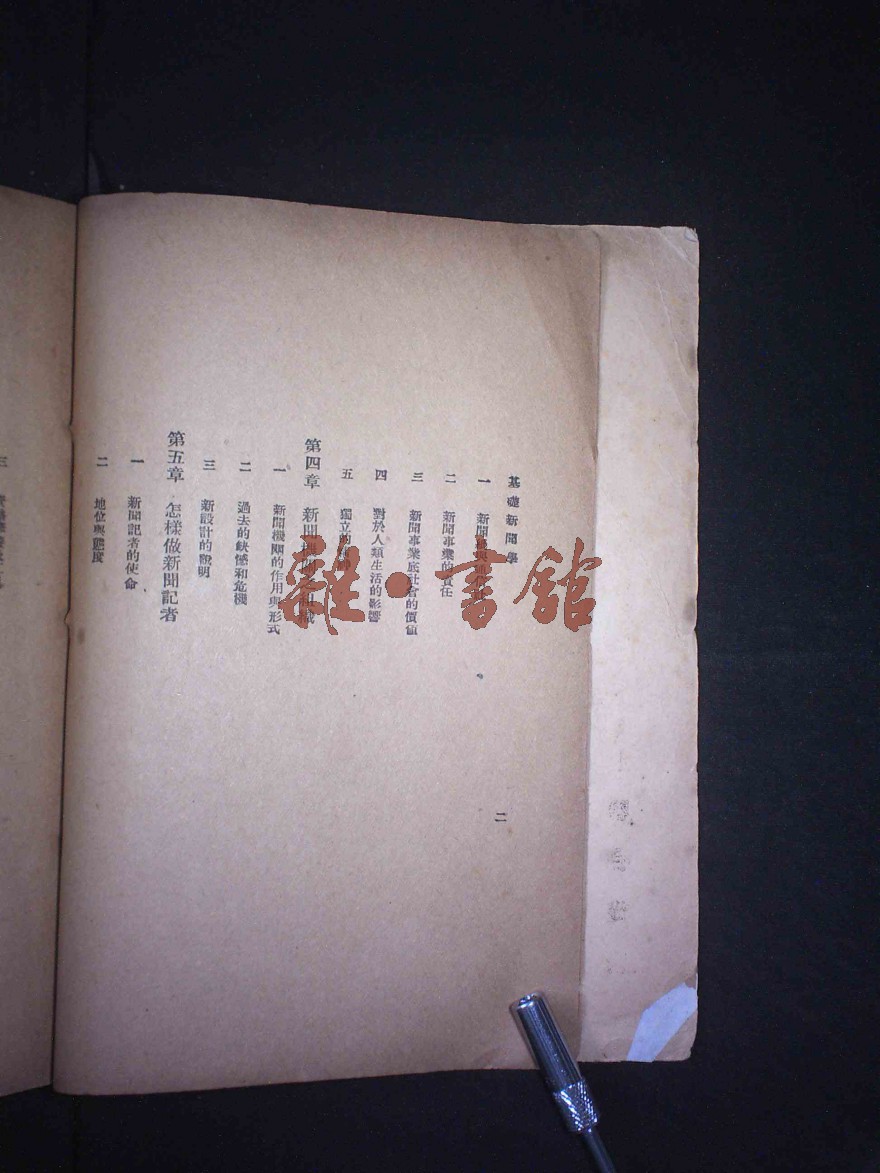 基礎新聞學
一 新聞
二 新聞事業的責任
三 新聞事業底社會的價值
四 對於人類生活的影響
五 獨立的
第四章 新聞機關之組織
一 新聞機關的作用與形式
二 過去的缺憾和危機
三 新設計的說明
第五章 怎樣做新聞記者
一 新聞記者的使命
二 地位與態度
三
二
雜·書館